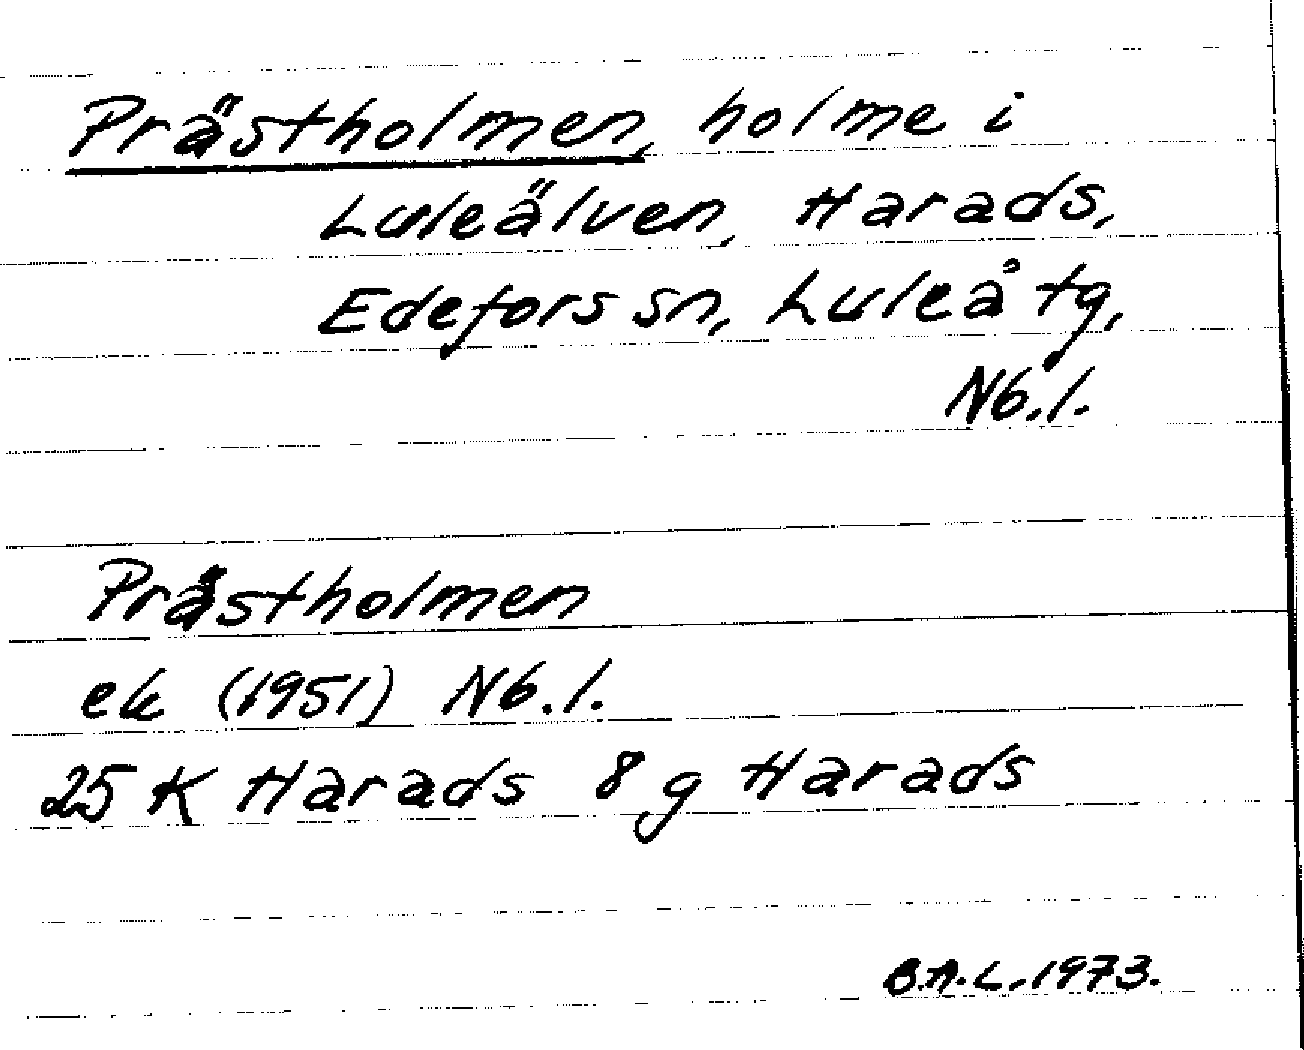 Prästholmen, holme i
Luleälven, Harads,
Edefors sn, Luleå tg,
Nb. l.
Prästholmen
ek (1951) Nb. l.
25 K Harads 8 g Harads
B.A.L. 1973.